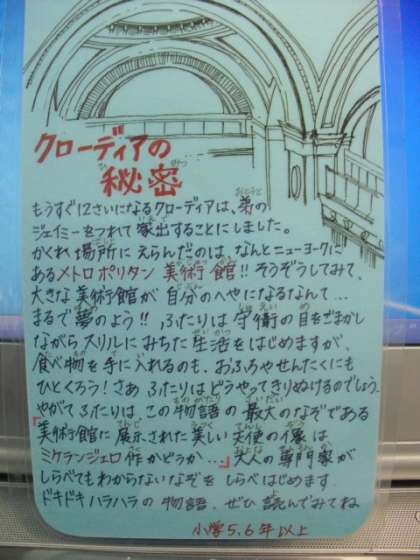 クローディアの
秘密
もうすぐ12さいになるクローディアは、弟の
ジェイミーをつれて家出することにしました。
かくれ場所にえらんだのは、なんとニューヨークに
あるメトロポリタン美術館!!そうぞうしてみて、
大きな美術館が自分のへやになるなんて…
まるで夢のよう!!ふたりは守衛の目をごまかし
ながらスリルにみちた生活をはじめますが、
食べ物を手に入れるのも、おふろやせんたくにも
ひとくろう!さあふたりはどうやってきりぬけるのでしょう。
やがてふたりは、この物語の最大のなぞである
「美術館に展示された美しい天使の像は
ミケランジェロ作かどうか…」大人の専門家が
しらべてもわからないなぞをしらべはじめます。
ドキドキハラハラの物語、ぜひ読んでみてね
小学5,6年以上